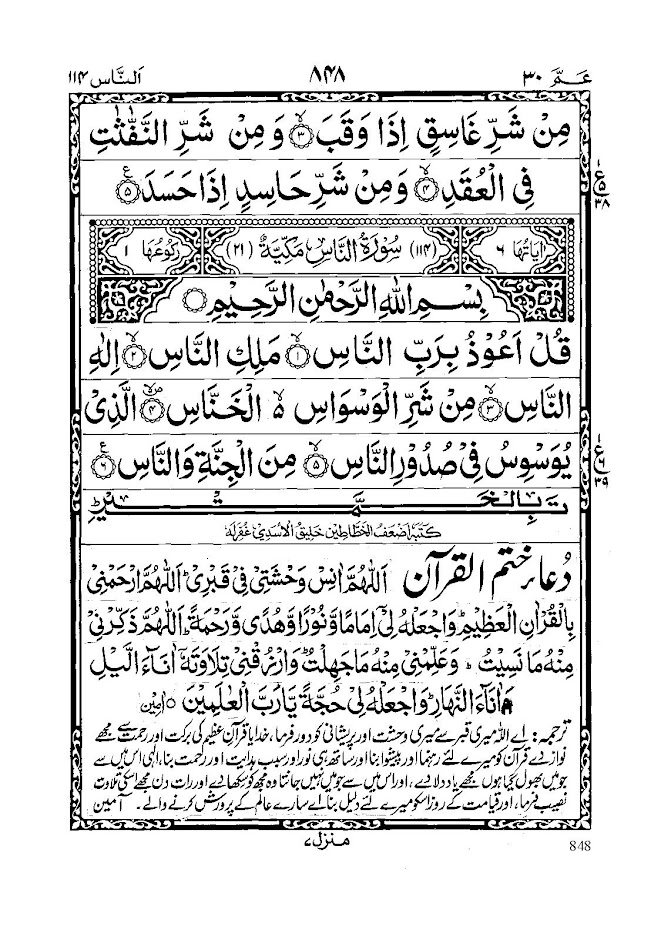 عَمَّ ۳۰ ۸۴۸ اَلنَّاس ۱۱۴
مِنْ شَرِّ غَاسِقٍ اِذَا وَقَبَ ۙ﴿۳﴾ وَمِنْ شَرِّ النَّفّٰثٰتِ
فِی الْعُقَدِ ۙ﴿۴﴾ وَمِنْ شَرِّ حَاسِدٍ اِذَا حَسَدَ ﴿۵﴾ ع
ع ۵ ۳۸
اٰیَاتُهَا ۶ (۱۱۴) سُوْرَةُ النَّاسِ مَكِّیَّةٌ (۲۱) رُكُوْعُهَا ۱
بِسْمِ اللهِ الرَّحْمٰنِ الرَّحِیْمِ
قُلْ اَعُوْذُ بِرَبِّ النَّاسِ ۙ﴿۱﴾ مَلِكِ النَّاسِ ۙ﴿۲﴾ اِلٰهِ
النَّاسِ ۙ﴿۳﴾ مِنْ شَرِّ الْوَسْوَاسِ ۵ۙ الْخَنَّاسِ ﴿۴﴾ الَّذِیْ
یُوَسْوِسُ فِیْ صُدُوْرِ النَّاسِ ۙ﴿۵﴾ مِنَ الْجِنَّةِ وَالنَّاسِ ﴿۶﴾ ع
ع ۶ ۳۹
تَمَّتْ بِالْخَیْرِ
كتبهٗ اضعف الخطاطین خلیق الاسدی غفرله
دُعاءِ ختم القرآن اَللّٰهُمَّ اٰنِسْ وَحْشَتِیْ فِیْ قَبْرِیْ ؕ اَللّٰهُمَّ ارْحَمْنِیْ
بِالْقُرْاٰنِ الْعَظِیْمِ ؕ وَاجْعَلْهُ لِیْ اِمَامًا وَّنُوْرًا وَّهُدًی وَّرَحْمَةً ؕ اَللّٰهُمَّ ذَكِّرْنِیْ
مِنْهُ مَا نَسِیْتُ ؕ وَعَلِّمْنِیْ مِنْهُ مَا جَهِلْتُ ؕ وَارْزُقْنِیْ تِلَاوَتَهٗ اٰنَآءَ الَّیْلِ
وَاٰنَآءَ النَّهَارِ ؕ وَاجْعَلْهُ لِیْ حُجَّةً یَّا رَبَّ الْعٰلَمِیْنَ ○ اٰمین
ترجمہ: اے اللہ میری قبر سے میری وحشت اور پریشانی کو دور فرما، خدایا قرآن عظیم کی برکت اور رحمت سے مجھے
نواز دے قرآن کو میرے لئے رہنما اور پیشوا بنا اور ساتھ ہی نور اور سبب ہدایت اور رحمت بنا، الٰہی اس میں سے
جو میں بھول گیا ہوں مجھے یاد دلادے، اور اس میں سے جو میں نہیں جانتا وہ مجھ کو سکھادے اور رات دن مجھے اسکی تلاوت
نصیب فرما، اور قیامت کے روز اسکو میرے لئے دلیل بنا اے سارے عالم کے پرورش کرنے والے۔ آمین
منزل ۷
848